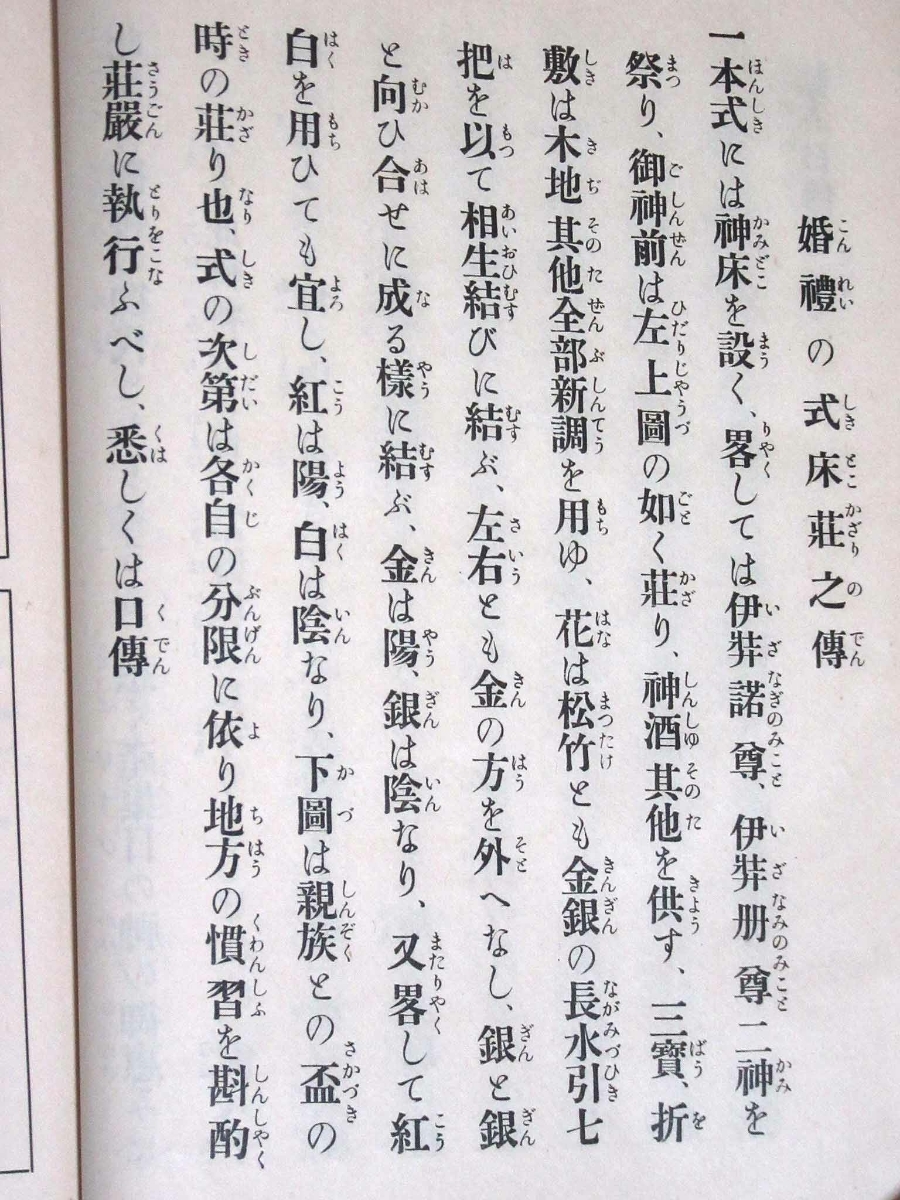 婚禮の式床莊之傳
一本式には神床を設く、畧しては伊弉諾尊、伊弉册尊二神を
祭り、御神前は左上圖の如く莊り、神酒其他を供す、三寶、折
敷は木地其他全部新調を用ゆ、花は松竹とも金銀の長水引七
把を以て相生結びに結ぶ、左右とも金の方を外へなし、銀と銀
と向ひ合せに成る樣に結ぶ、金は陽、銀は陰なり、又畧して紅
白を用ひても宜し、紅は陽、白は陰なり、下圖は親族との盃の
時の莊り也、式の次第は各自の分限に依り地方の慣習を斟酌
し莊嚴に執行ふべし、悉しくは口傳